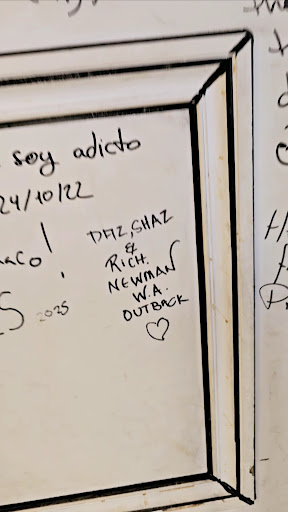 soy adicto
24/10/22
2025
DAZ, SHAZ
&
RICH.
NEWMAN
W.A.
OUTBACK